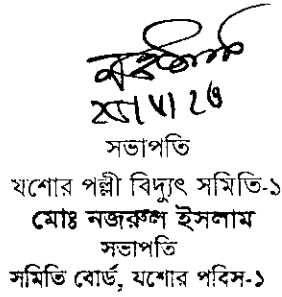 সভাপতি
যশোর পল্লী বিদ্যুৎ সমিতি-১
মোঃ নজরুল ইসলাম
সভাপতি
সমিতি বোর্ড, যশোর পবিস-১